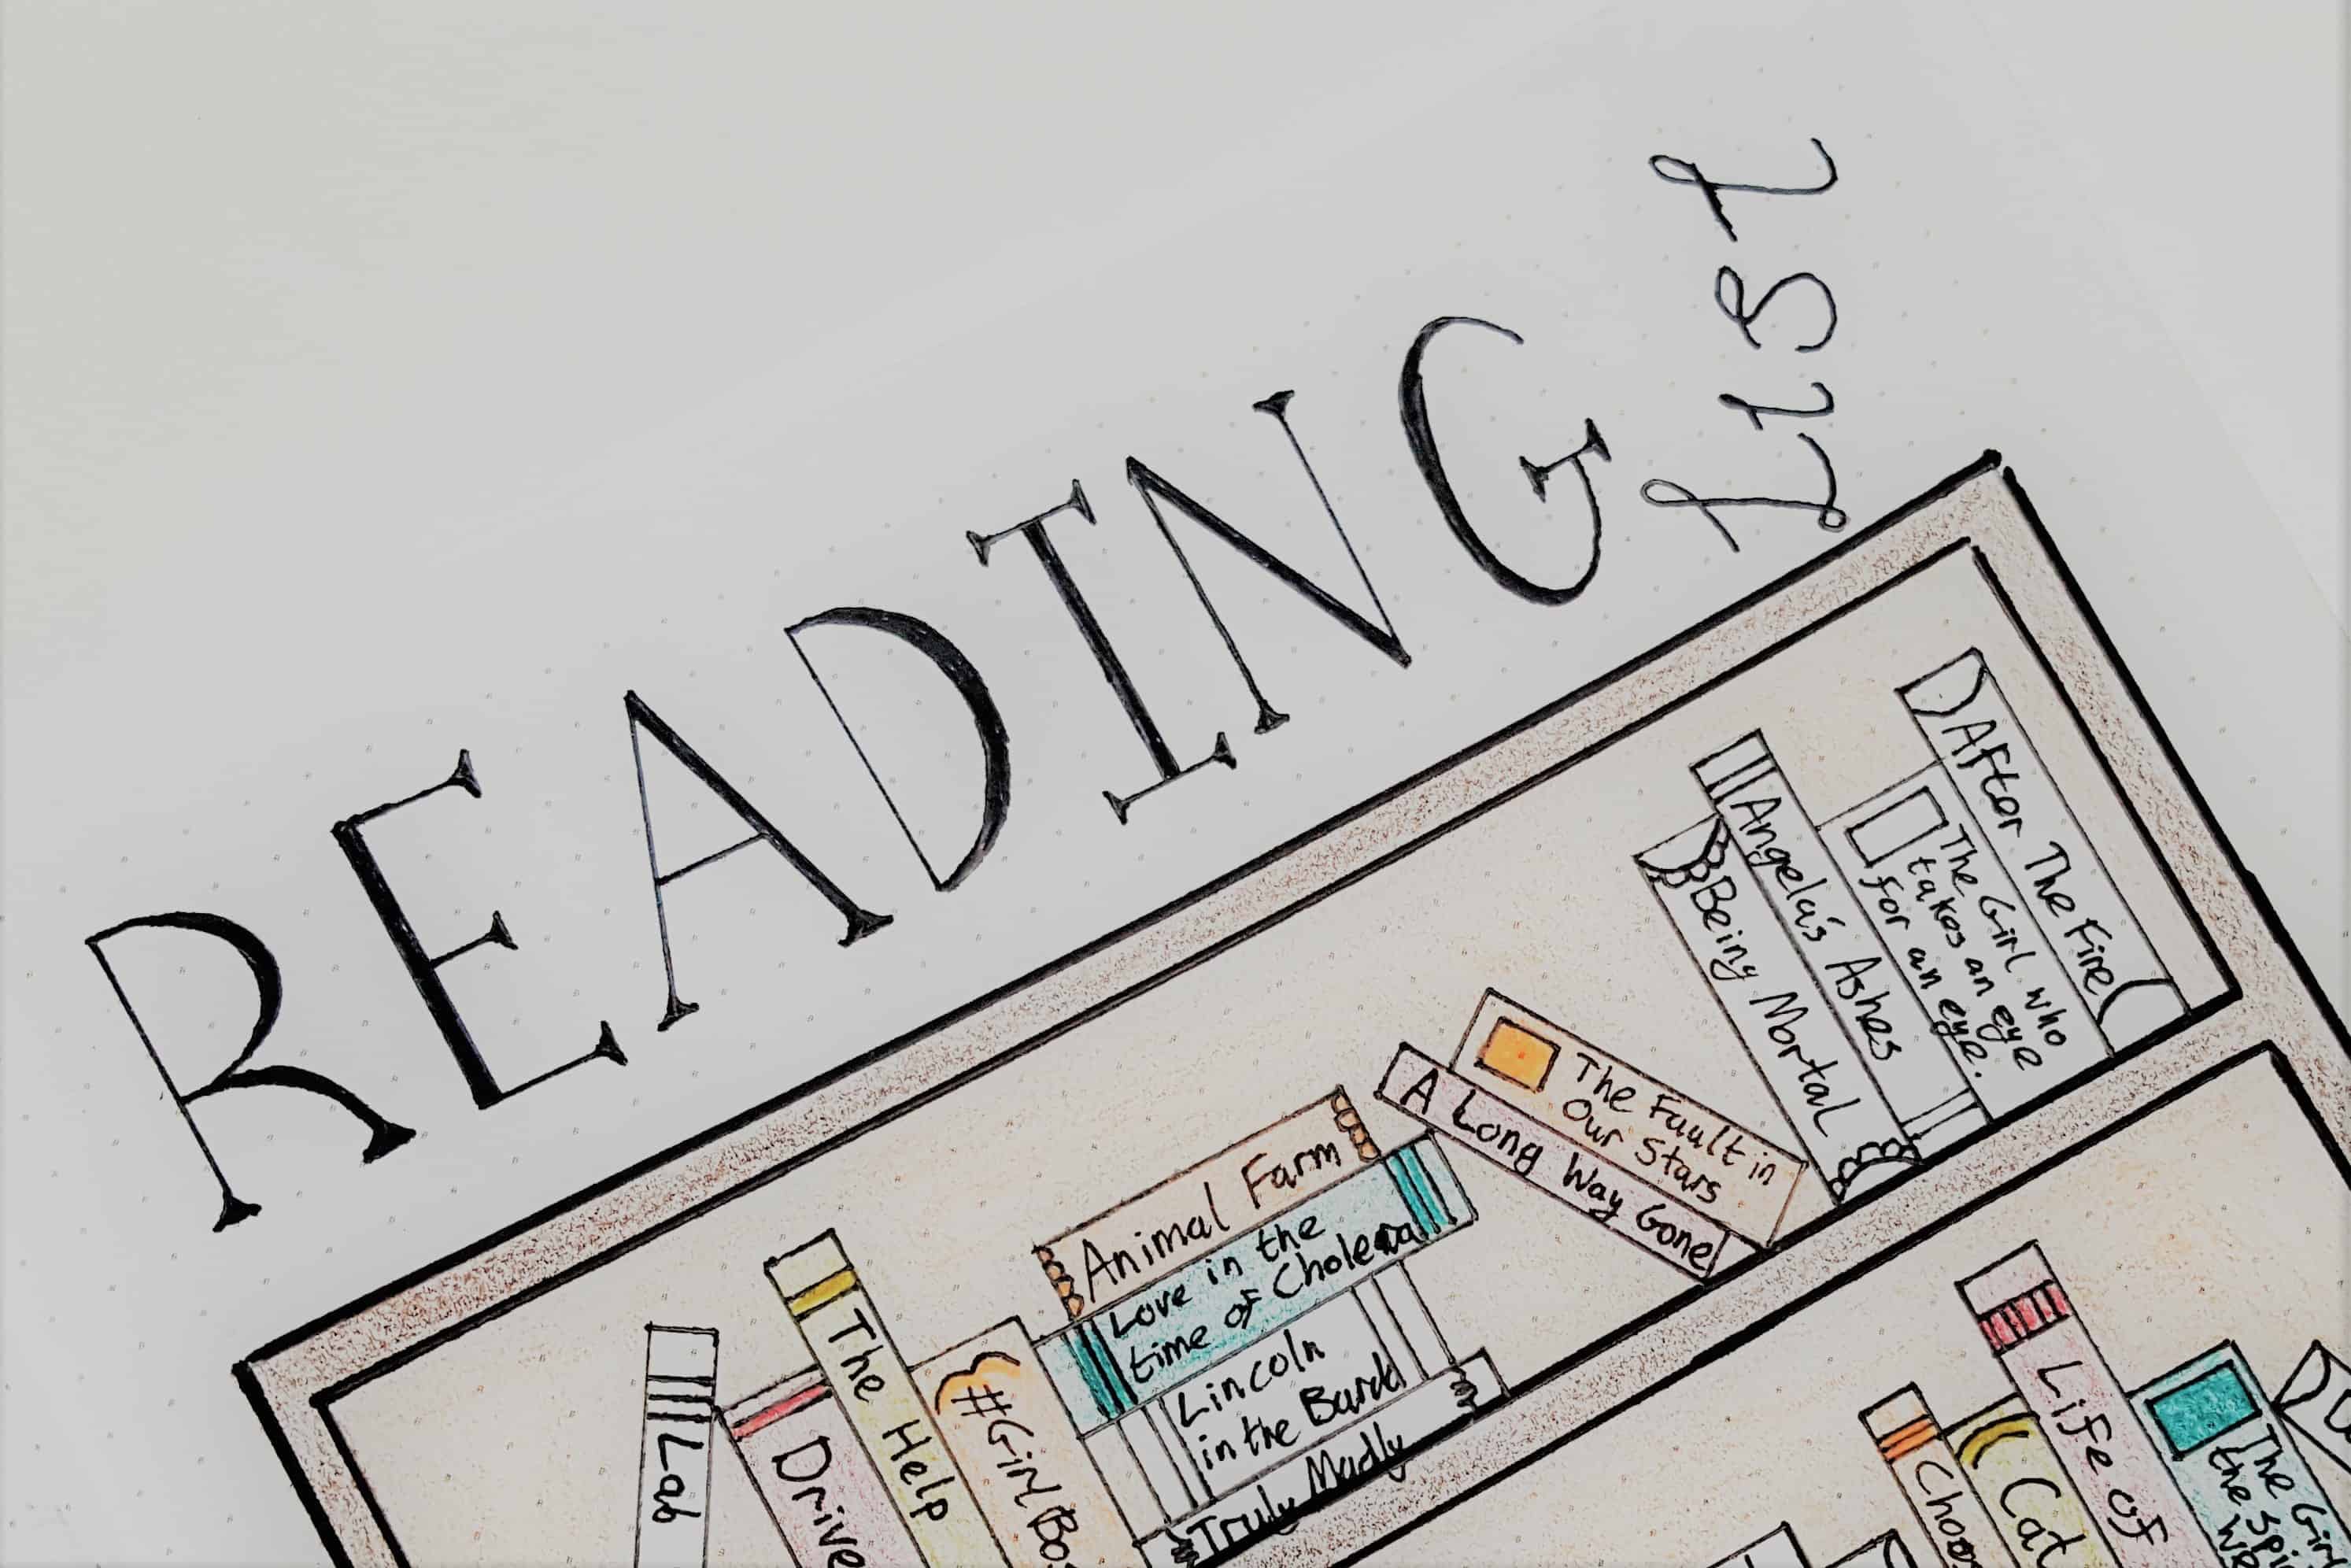 READING
List
Lab
Drive
The Help
#GirlBos
Animal Farm
Love in the
time of Cholera
Lincoln
in the Bardo
Truly Madly
A Long Way Gone
The Fault in
Our Stars
Being Mortal
Angela's Ashes
The Girl who
takes an eye
for an eye.
After The Fire
Choo
Cat
Life of
The Gir
the Spi